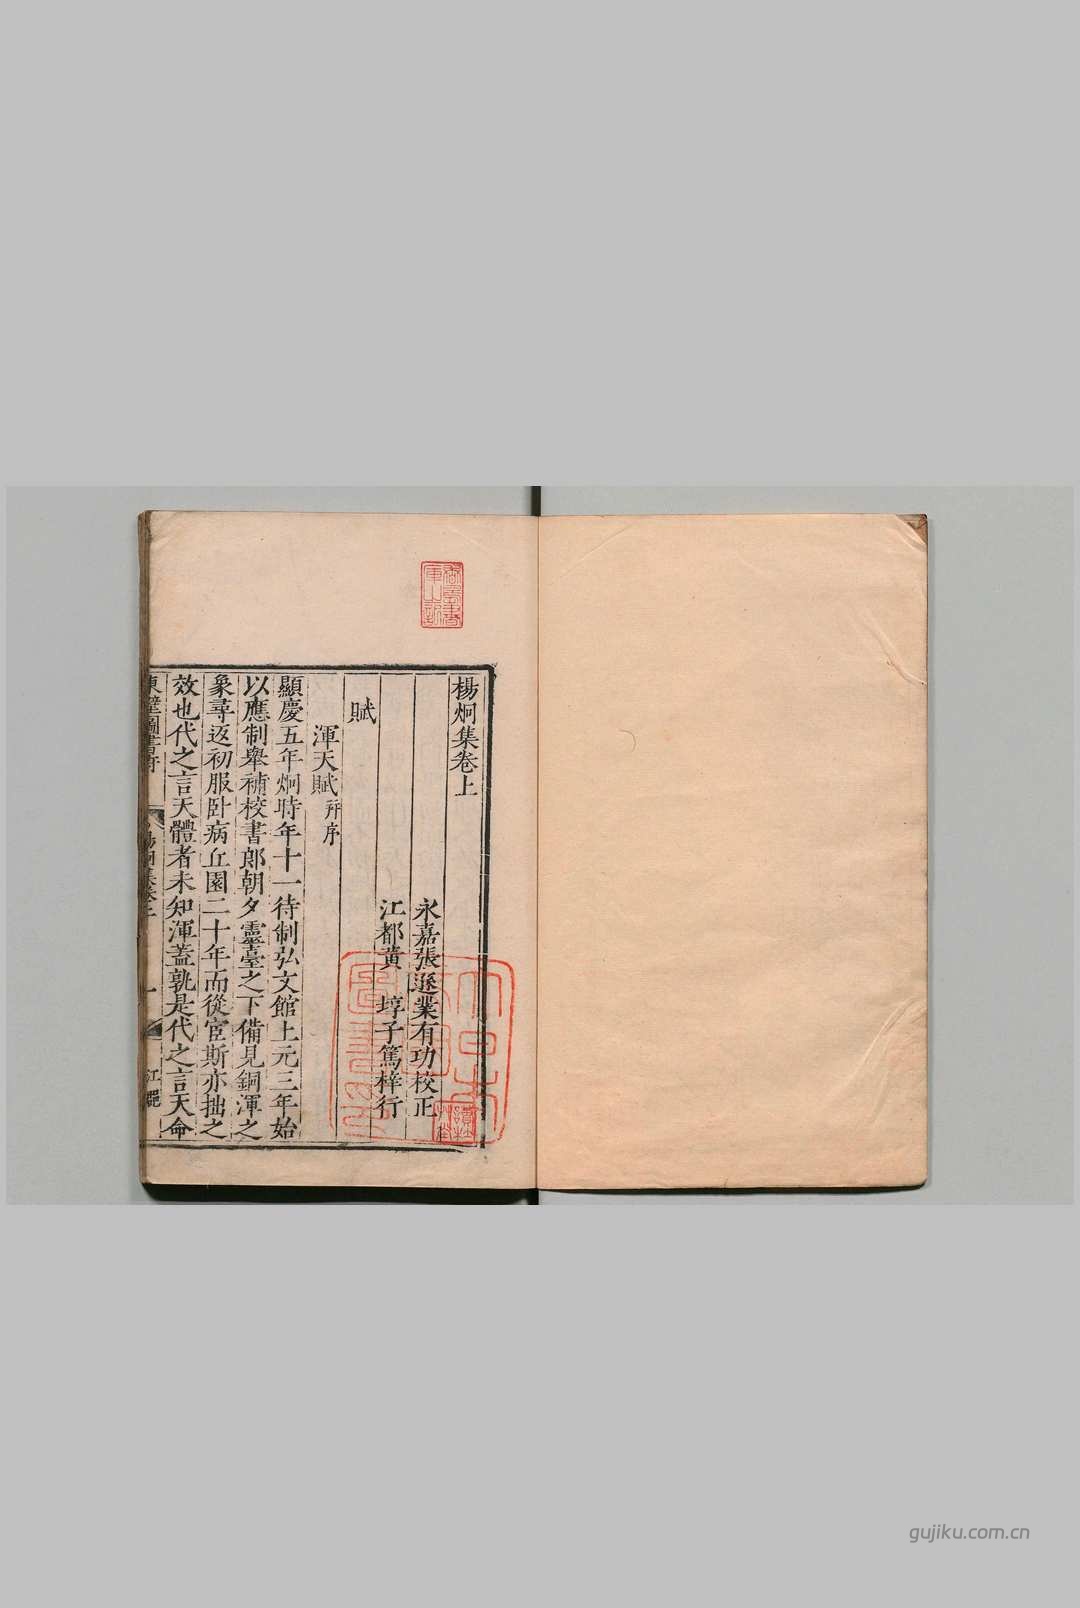 楊炯集卷上
永嘉張遜業有功校正
江都黄 埻子篤梓行
賦
渾天賦 并序
顯慶五年炯時年十一待制弘文館上元三年始
以應制舉補校書郎朝夕靈臺之下備見銅渾之
象尋返初服卧病丘園二十年而從宦斯亦拙之
效也代之言天體者未知渾蓋孰是代之言天命
東壁圖書府
楊炯集卷上
一
江郡
大日本
圖書印
gujiku.com.cn